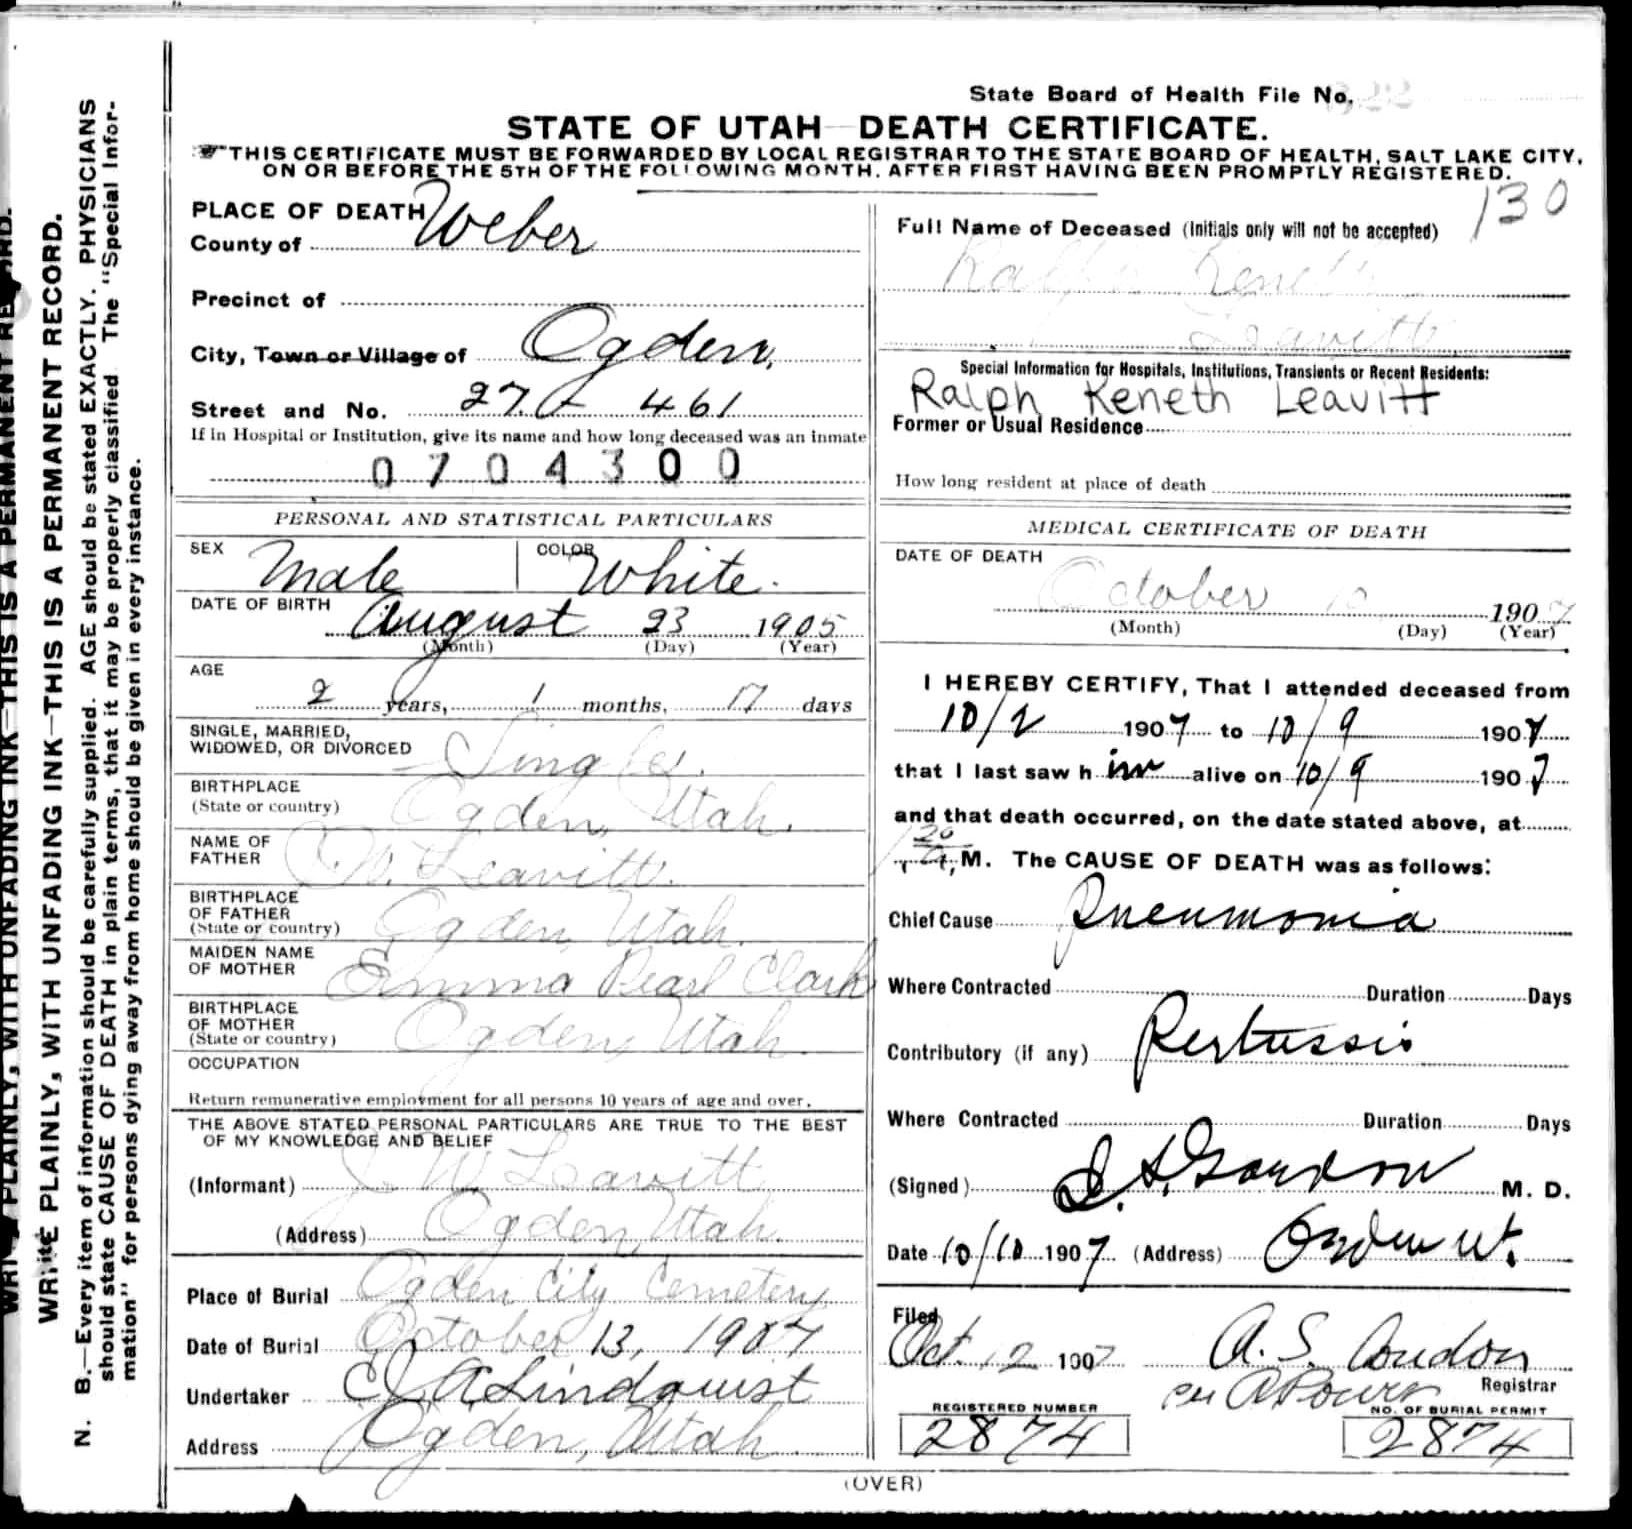 State Board of Health File No.
STATE OF UTAH—DEATH CERTIFICATE.
THIS CERTIFICATE MUST BE FORWARDED BY LOCAL REGISTRAR TO THE STATE BOARD OF HEALTH, SALT LAKE CITY,
ON OR BEFORE THE 5TH OF THE FOLLOWING MONTH, AFTER FIRST HAVING BEEN PROMPTLY REGISTERED.
130
PLACE OF DEATH
County of Weber
Precinct of
City, Town or Village of Ogden,
Street and No. 27. 461
If in Hospital or Institution, give its name and how long deceased was an inmate
0704300
PERSONAL AND STATISTICAL PARTICULARS
SEX Male COLOR White.
DATE OF BIRTH August 23 1905
(Month) (Day) (Year)
AGE
2 years, 1 months, 17 days
SINGLE, MARRIED,
WIDOWED, OR DIVORCED Single.
BIRTHPLACE
(State or country) Ogden, Utah.
NAME OF
FATHER W. Leavitt.
BIRTHPLACE
OF FATHER
(State or country) Ogden Utah.
MAIDEN NAME
OF MOTHER Emma Pearl Clark
BIRTHPLACE
OF MOTHER
(State or country) Ogden, Utah.
OCCUPATION
Return remunerative employment for all persons 10 years of age and over.
THE ABOVE STATED PERSONAL PARTICULARS ARE TRUE TO THE BEST
OF MY KNOWLEDGE AND BELIEF
(Informant) J. W. Leavitt
(Address) Ogden, Utah.
Place of Burial Ogden City Cemetery
Date of Burial October 13, 1907
Undertaker C J A Lindquist
Address Ogden, Utah.
Full Name of Deceased (Initials only will not be accepted)
Ralph Keneth
Leavitt
Special Information for Hospitals, Institutions, Transients or Recent Residents:
Ralph Keneth Leavitt
Former or Usual Residence
How long resident at place of death
MEDICAL CERTIFICATE OF DEATH
DATE OF DEATH
October 10 1907
(Month) (Day) (Year)
I HEREBY CERTIFY, That I attended deceased from
10/2 1907 to 10/9 1907
that I last saw him alive on 10/9 1907
and that death occurred, on the date stated above, at
M. The CAUSE OF DEATH was as follows:
Chief Cause Pneumonia
Where Contracted Duration Days
Contributory (if any) Pertussis
Where Contracted Duration Days
(Signed) M. D.
Date 10/10 1907 (Address) Ogden Ut.
Filed
Oct. 12 1907 A. S. Condon
Registrar
REGISTERED NUMBER
2874
NO. OF BURIAL PERMIT
2874
(OVER)
WRITE PLAINLY, WITH UNFADING INK—THIS IS A PERMANENT RECORD.
WRITE PLAINLY, WITH UNFADING INK—THIS IS A PERMANENT RECORD.
N. B.—Every item of information should be carefully supplied. AGE should be stated EXACTLY. PHYSICIANS
should state CAUSE OF DEATH in plain terms, that it may be properly classified. The "Special Infor-
mation" for persons dying away from home should be given in every instance.